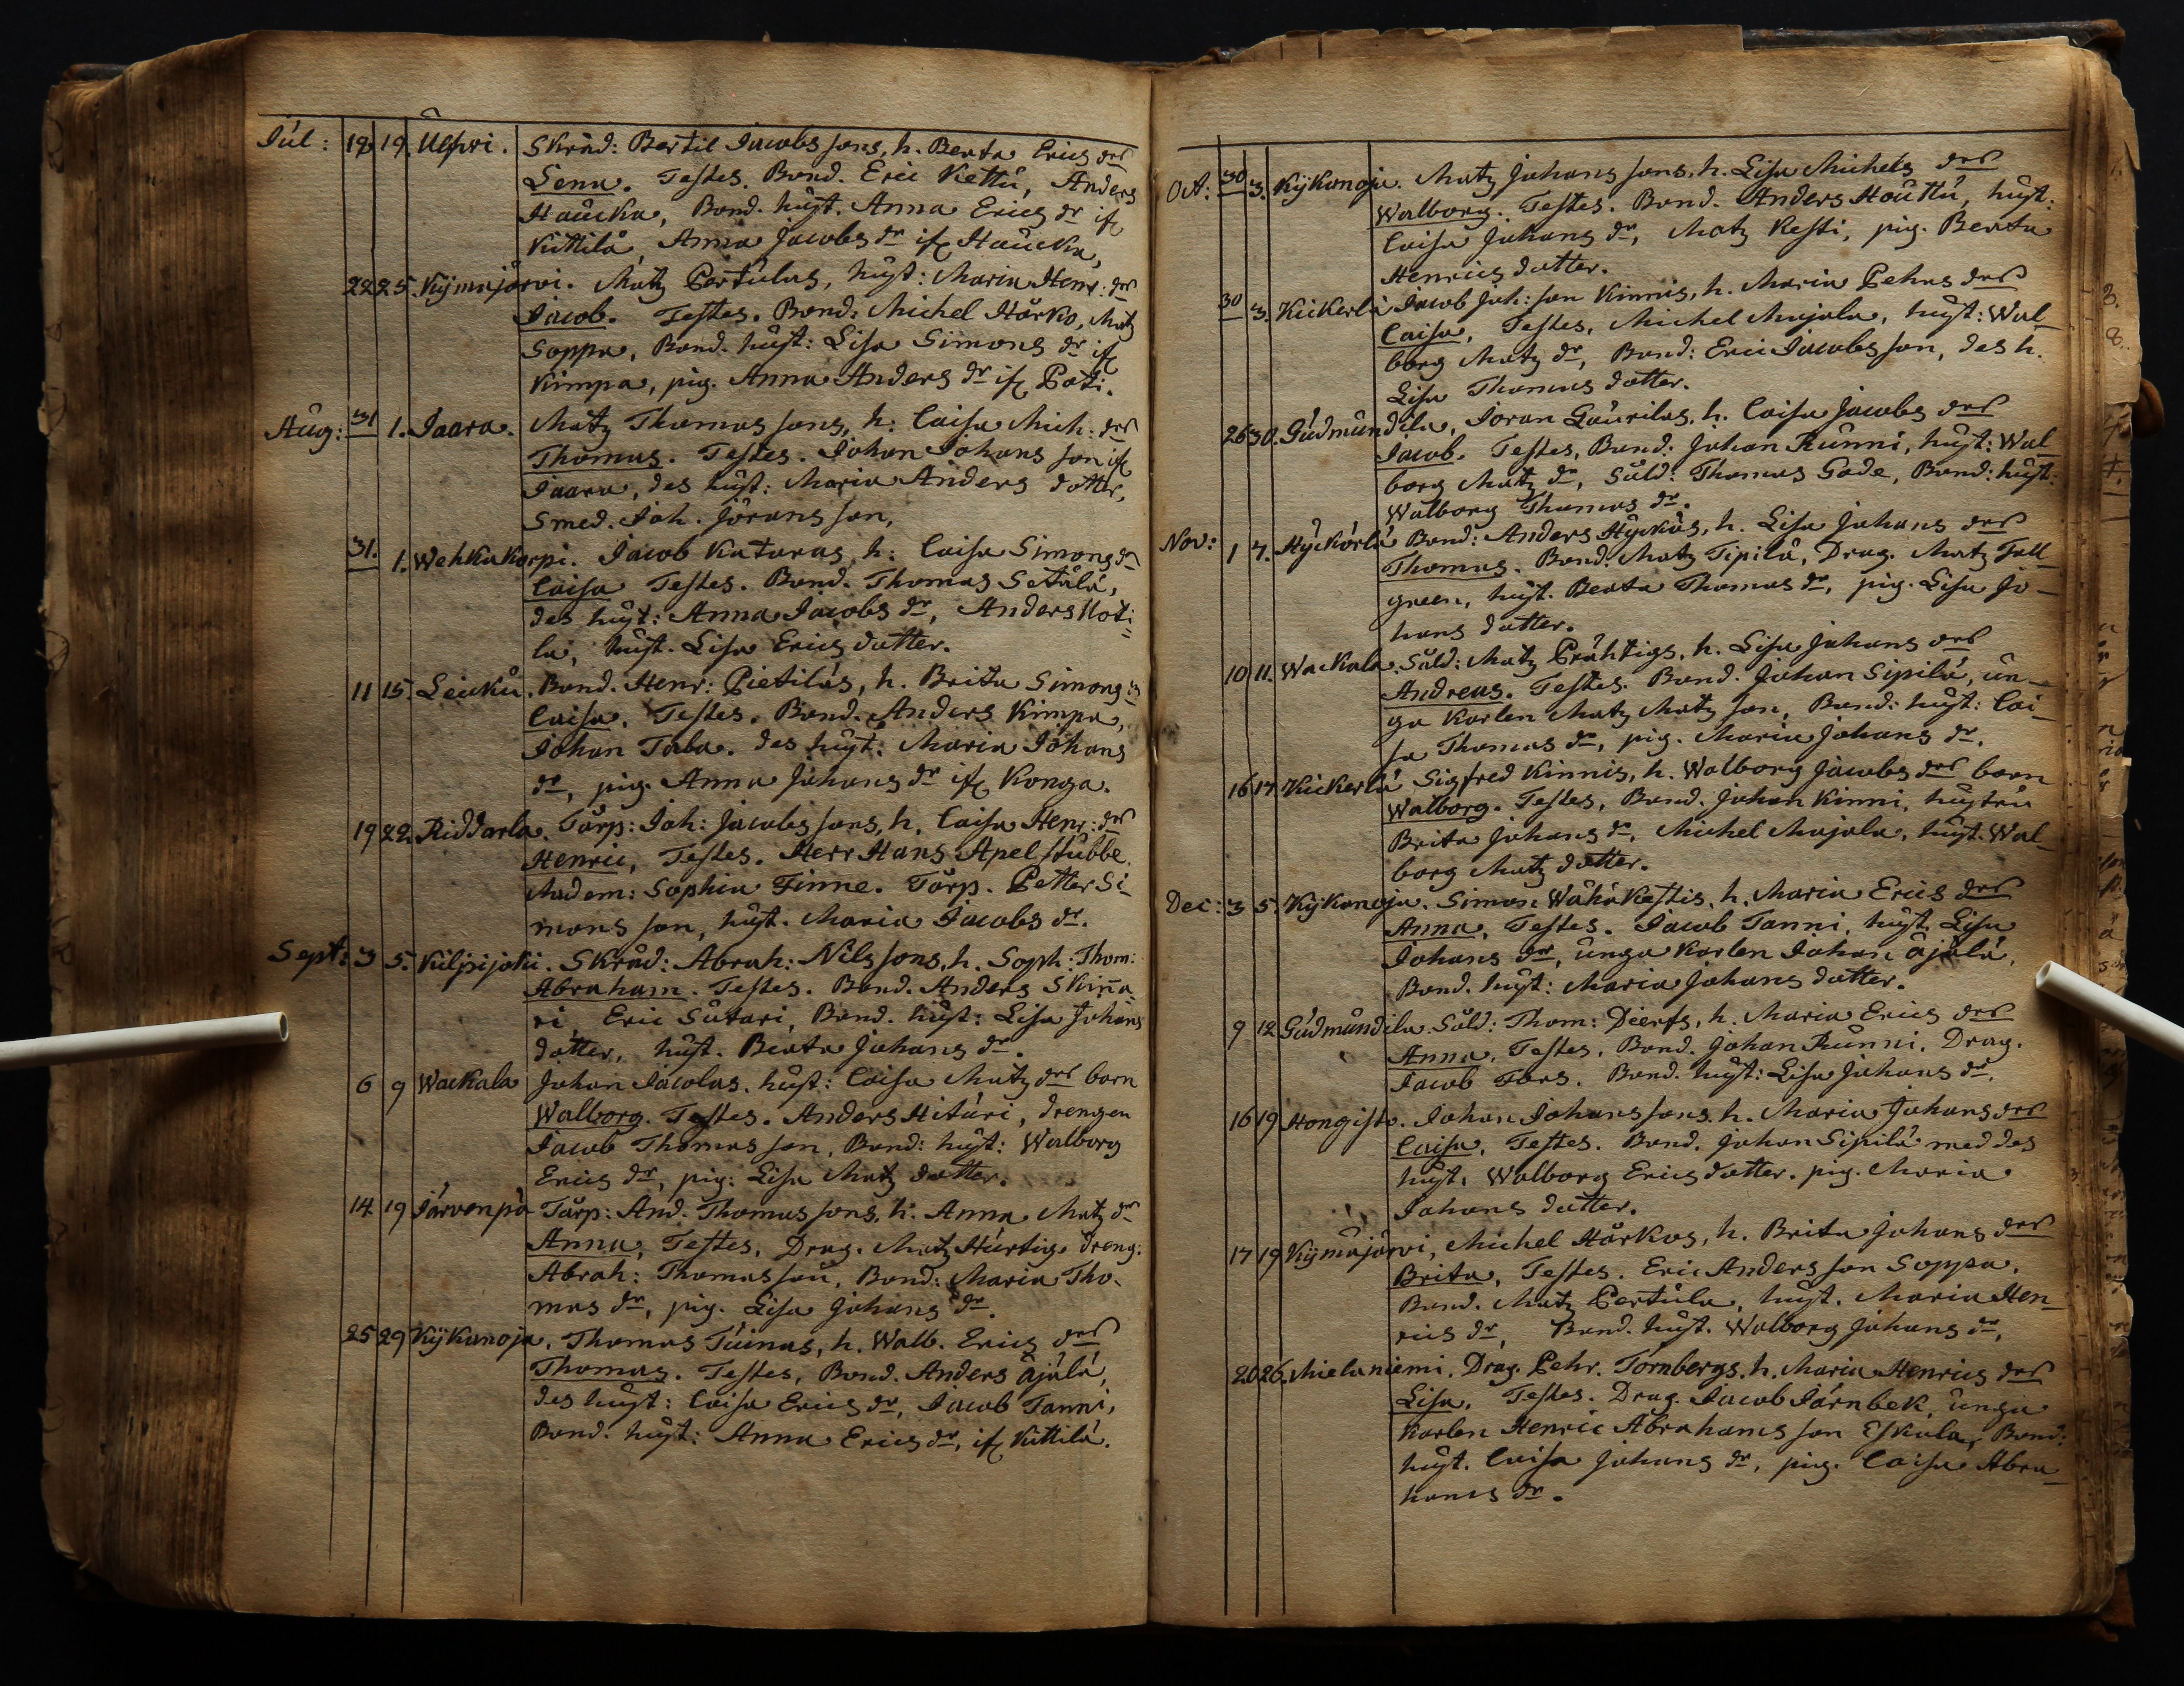 Júl: 18 19. Ulfvri. Skräd: Bertil Jacobs sons, h. Beata Erics drs
Lena. Testes. Bond. Eric Kettu, Anders
Haucka, Bond. hust. Anna Erics dr ifr
Kúttilä, Anna Jacobs dr ifr Haucka,
22 25. Kymäjärvi. Matz Pertulas, hust: Maria Henr: drs
Jacob. Testes. Bond: Michel Härko, Matz
Soppa, Bond. hust: Lisa Simons dr ifr
Kimpa, pig. Anna Anders dr ifr Poti.
Aug: 31 1. Jaara. Matz Thomas sons, h: Caisa Mich: drs
Thomas. Testes. Johan Johans son ifr
Jaara, des hust: Maria Anders dotter,
Smed. Joh. Jörans son,
31. 1. Wehkakorpi. Jacob Kataras, h: Caisa Simons dr
Caisa Testes. Bond. Thomas Setälä,
des hust: Anna Jacobs dr, Anders Uoti=
la, hust. Lisa Erics dotter.
11 15. Leickú. Bond. Henr: Pietiläs, h. Brita Simons
Caisa. Testes. Bond. Anders Kimpa,
Johan Tala. des hust: Maria Johans
dr, pig. Anna Johans dr ifr Konga.
19 22. Riddarla. Torp: Joh: Jacobs sons, h. Caisa Henr: drs
Henric, Testes. Herr Hans Apelstubbe.
Madem: Sophia Finne. Torp. Petter Si
mons son, hust. Maria Jacobs dr.
Sept: 3 5. Kilpijoki. Skräd: Abrah: Nils sons, h. Soph: Thom:
Abraham. Testes. Bond. Anders Skinna
ri, Eric Sutari, Bond. hust: Lisa Johans
dotter, hust. Beata Johans dr.
6 9 Wackala Johan Jacolas. hust: Caisa Matz drs barn
Walborg. Testes. Anders Hituri, drengen
Jacob Thomas son, Bond: hust: Walborg
Erics dr, pig: Lisa Matz dotter.
14 19 Järvenpä Torp: And. Thomas sons, h. Anna Matz dr
Anna, Testes, Drag. Matz Hurtig. dreng:
Abrah: Thomas son, Bond: Maria Tho-
mas dr, pig. Lisa Johans dr.
25 29 Kykanoja. Thomas Tuinas, h. Walb. Erics drs
Thomas. Testes, Bond. Anders Äjälä,
des hust: Caisa Erics dr, Jacob Tanni,
Bond. hust: Anna Erics dr, ifr Kuttilä.
Oct: 30 3. Kykanoja. Matz Johans sons, h. Lisa Michels drs
Walborg. Testes. Bond. Anders Houttu, hust:
Caisa Johans dr, Matz Kesti, pig. Beata
Henrics dotter.
30 3. Kickerlä Jacob Joh: son Kinnis, h. Maria Pehrs drs
Caisa, Testes, Michel Majala, hust: Wal-
borg Matz dr, Bond: Eric Jacobs son, des h.
Lisa Thomas dotter.
26 30. Gúdmundila, Joran Gaurilas, h. Caisa Jacobs drs
Jacob. Testes, Bond: Johan Runni, hust: Wal
borg Matz dr, Sold: Thomas Gode, Bond: hust:
Walborg Thomas dr.
Nov: 1 7. Hyckörlä Bond: Anders Hyckös, h. Lisa Johans drs
Thomas. Bond. Matz Sipilä, Drag. Matz Fall
green, hust. Beata Thomas dr, pig. Lisa Jo-
hans dotter.
10 11. Wackala. Sold: Matz Prähtigs, h. Lisa Johans drs
Andreas. Testes. Bond. Johan Sipilä, un-
ga Karlen Matz Matz son, Bond: hust: Cai-
sa Thomas dr, pig. Maria Johans dr.
16 17 Kickerlä Sigfred Kinnis, h. Walborg Jacobs drs barn
Walborg. Testes, Bond. Johan Kinni, hustru
Brita Johans dr, Michel Majala, hust. Wal-
borg Matz dotter.
Dec: 3 5. Kykanoja. Simon Wähäkestis, h. Maria Erics drs
Anna, Testes. Jacob Tanni, hust. Lisa
Johans dr, unga Karlen Johan Äjälä,
Bond. hust: Maria Johans dotter.
9 12 Gúdmundila. Sold: Thom: Dierfs, h. Maria Erics drs
Anna, Testes, Bond. Johan Runni, Drag.
Jacob Fors. Bond. hust: Lisa Johans dr.
16 19 Hongisto. Johan Johans sons, h. Maria Johans drs
Caisa, Testes. Bond. Johan Sipilä med des
hust. Walborg Erics dotter. pig. Maria
Johans dotter.
17 19 Kymäjärvi, Michel Härkos, h. Brita Johans drs
Brita, Testes. Eric Anders son Soppa,
Bond. Matz Pertula, hust. Maria Hen-
rics dr, Bond. hust. Walborg Johans dr,
20 26. Mielaniemi. Drag. Pehr. Törnbergs. h. Maria Henrics drs
Lisa, Testes. Drag. Jacob Järnbek, unga
Karlen Henric Abrahams son Eskala, Bond:
hust. Caisa Johans dr, pig. Caisa Abra-
hams dr.